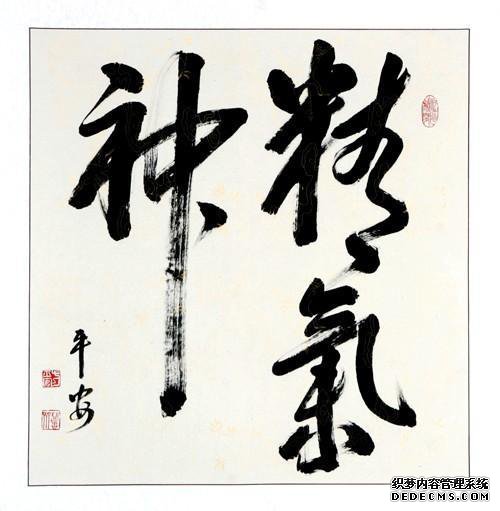 精氣
神
平安
织梦内容管理系统
DEDECMS.COM